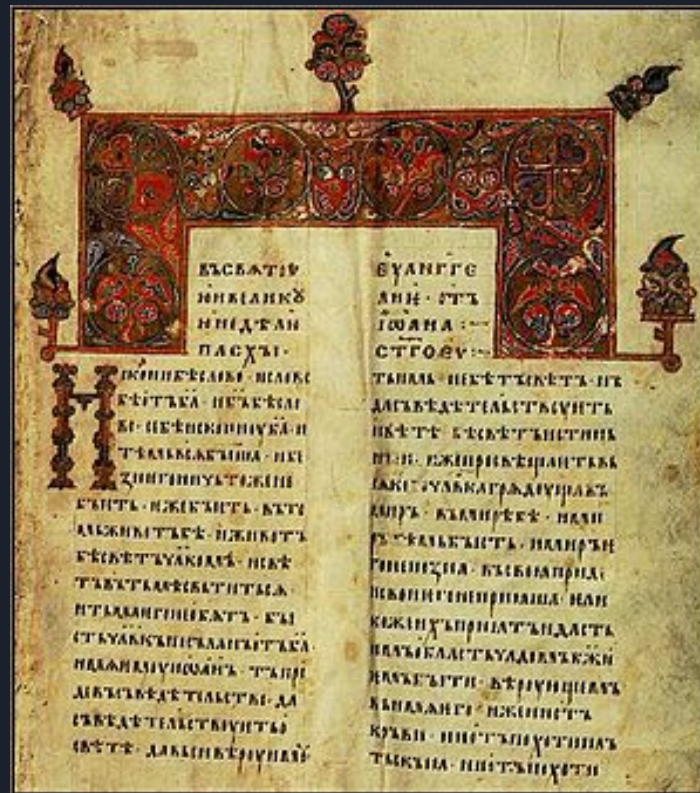 ВЪСВѦТОУ
ЮИВЕЛИКꙊ
ЮНЕДѢЛЮ
ПАСХЪІ·
ИСКОНИБѢСЛОВО·ИСЛОВО
БѢОТЪБА·ИБЪБѢСЛО
ВО·СЕБѢИСКОНИУБА·И
ТѢМЬВСѦБЫША·ИБЕ
ЗНЕГОНИЧЬТОЖЕНЕ
БЫСТЬ·ИЖЕБЫСТЬ·ВЪТО
МЬЖИВОТЪБѢ·ИЖИВОТЪ
БѢСВѢТЪЧЛКОМЪ·ИСВѢ
ТЪВЪТЬМѢСВЬТИТЬСѦ·
ИТЬМАЕГОНЕОБѦТЪ·БЫ
СТЬЧЛКЪПОСЪЛАНЪОТЪБА
ИМѦЖЕМОУИОАНЪ·ТЪПРИ
ДЕВЪСЪВѢДѢТЕЛЬСТВО·ДА
СЪВѢДѢТЕЛЬСТВОУѤТЬО
СВѢТѢ·ДАВЬСИВѢРОУИМОУ
ЕУАНГГЕ
ЛИЮ·ОТЪ
ІѠАНА:~
СТГОЕУ:~
ТЬИМЬ·НЕБѢТЪСВѢТЪ·НЪ
ДАСЪВѢДѢТЕЛЬСТВОУѤТЬ
ОСВѢТѢ·БѢСВѢТЪИСТИНЬ
ИЖЕПРОСВѢЩАѤТЬВЬ
ЧЛВКАГРѦДОУЩАВЪ
МИРЪ·ВЪМИРѢБѢ·ИМИ
РЪТѢМЬБЫСТЬ·ИМИРЪѤ
ГОНЕПОЗНА·ВЪСВОꙖПРИДЕ
ИСВОИѤГОНЕПРИꙖША·ѤЛИ
КОЖЕИХЪПРИꙖТЪИДАСТЬ
ИМЪОБЛАСТЬЧАДОМЪБЖИ
ѤМЪБЫТИ·ВѢРОУЮЩЕМЪ
ВЪИМѦѤГО·ИЖЕНИОТЪ
КРЪВИ·НИОТЪПОХОТИПЛЪ
ТЬСКЫꙖ·НИОТЪПОХОТИ